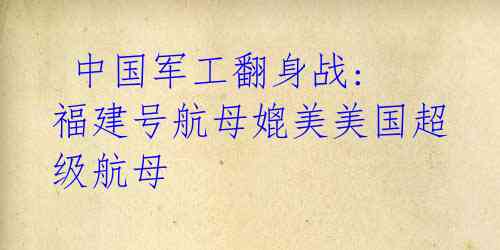 中国军工翻身战:
福建号航母媲美美国超
级航母